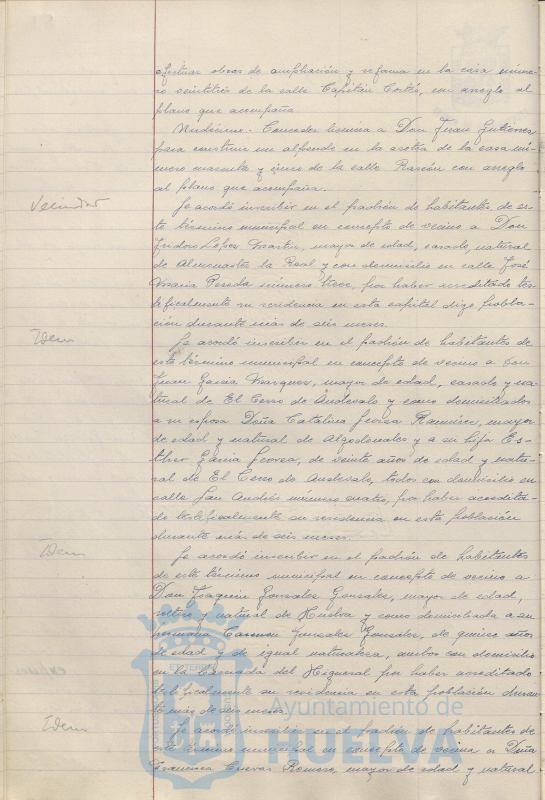 efectuar obras de ampliación y reforma en la casa núme-
ro veintitrés de la calle Capitán Cortés, con arreglo al
plano que acompaña.
Undécimo.- Conceder licencia a Don Juan Gutierrez
para construir un alpende en la azotea de la casa nú-
mero cuarenta y cinco de la calle Rascón con arreglo
al plano que acompaña.
Vecindad
Se acordó inscribir en el padrón de habitantes de es-
te término municipal en concepto de vecino a Don
Isidoro López Martin, mayor de edad, casado, natural
de Almonaster la Real y con domicilio en calle José
Maria Pereda número trece, por haber acreditado tes-
tificalmente su residencia en esta capital digo pobla-
ción durante más de seis meses.
Idem
Se acordó inscribir en el padrón de habitantes de
este término municipal en concepto de vecino a Don
Juan Garcia Marquez, mayor de edad, casado y na-
tural de El Cerro de Andévalo y como domiciliados
a su esposa Doña Catalina Ramirez, mayor
de edad y natural de Algodonales y a su hija Es-
ther Garcia, de veinte años de edad y natu-
ral de El Cerro de Andevalo, todos con domicilio en
calle San Andrés número cuatro, por haber acredita-
do testificalmente su residencia en esta población
durante más de seis meses.
Idem
Se acordó inscribir en el padrón de habitantes
de este término municipal en concepto de vecino a
Don Joaquin Gonzalez Gonzalez, mayor de edad,
soltero y natural de Huelva y como domiciliada a su
hermana Carmen Gonzalez Gonzalez, de quince años
de edad y de igual naturaleza, ambos con domicilio
en la Barriada del Higueral por haber acreditado
testificalmente su residencia en esta población duran-
te más de seis meses.
Idem
Se acordó inscribir en el padrón de habitantes de
este término municipal en concepto de vecina a Doña
Francisca Cuevas Romero, mayor de edad y natural
Ayuntamiento de
HUELVA